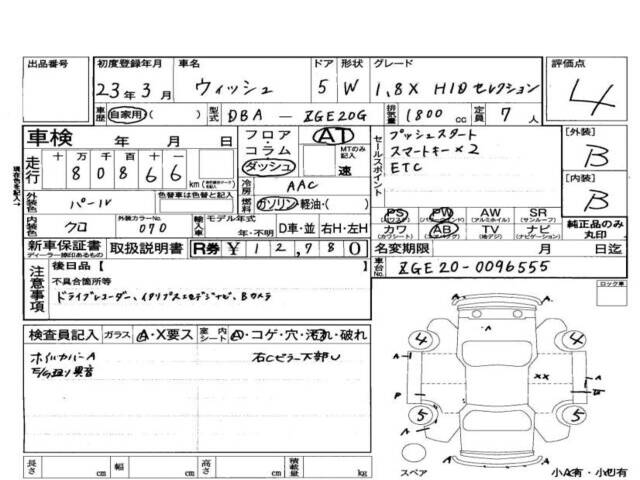 出品番号 初度登録年月 車名 ドア 形状 グレード 評価点
23年3月 ウィッシュ 5 W 1,8X HIDセレクション 4
車歴 自家用( ) 型式 DBA - ZGE20G 排気量 1800 cc 定員 7 人
車検 年 月 日
フロア・コラム・ダッシュ AT MTのみ記入 速
走行 十 万 千 百 十 一
8 0 8 6 6 km
冷房 AAC
外装色 パール 色替車は色替と記入
燃料 ガソリン・軽油・( )
内装色 クロ 外装カラーNo. 070 輸入車 モデル年式 年・不明 D車・並 右H・左H
セールスポイント
プッシュスタート
スマートキー×2
ETC
[外装] B
[内装] B
PS PW AW SR
(パワステ) (パワーウインドウ) (アルミホイル) (サンルーフ)
カワ AB TV ナビ
(カワシート) (エアバッグ) (地デジ) (ナビゲーション)
純正品のみ丸印
新車保証書 取扱説明書 R券 ¥12,780
ディーラー捺印あるもの
名変期限 月 日迄
車台No. ZGE20-0096555
現在色を記入→
注意事項
後日品 [ ]
不具合箇所等
ドライブレコーダー、イクリプスメモデジナビ、Bカメラ
ロック車
検査員記入 ガラス A・X要ス 室内シート A・コゲ・穴・汚れ・破れ
ホイルカバーA
右Cピラー下部U
4 A 4
A A
P XX
5 5
A
スペア
長さ cm 幅 cm 高さ cm 積載量 kg
小A有・小U有